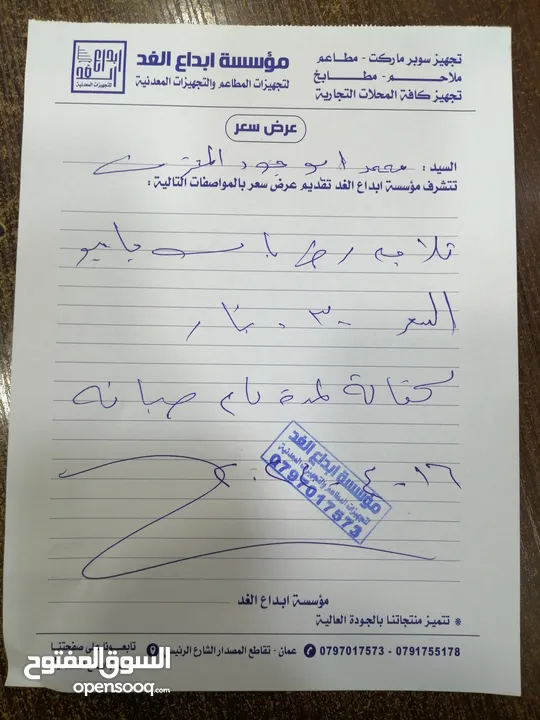 ابداع الغد
للتجهيزات المعدنية
مؤسسة ابداع الغد
لتجهيزات المطاعم والتجهيزات المعدنية
تجهيز سوبر ماركت - مطاعم
ملاحم - مطابخ
تجهيز كافة المحلات التجارية
عرض سعر
السيد : محمد ابو جود
تتشرف مؤسسة ابداع الغد تقديم عرض سعر بالمواصفات التالية :
ثلاجه باب
السعر ٣٠٠ دينار
كفالة لمدة عام صيانه
١٦ - ٤
مؤسسة ابداع الغد
لتجهيزات المطاعم والتجهيزات المعدنية
0797017573
مؤسسة ابداع الغد
* تتميز منتجاتنا بالجودة العالية
0797017573 - 0791755178
عمان - تقاطع المصدار الشارع
تابعونا على صفحتنا
السوق المفتوح
opensooq.com